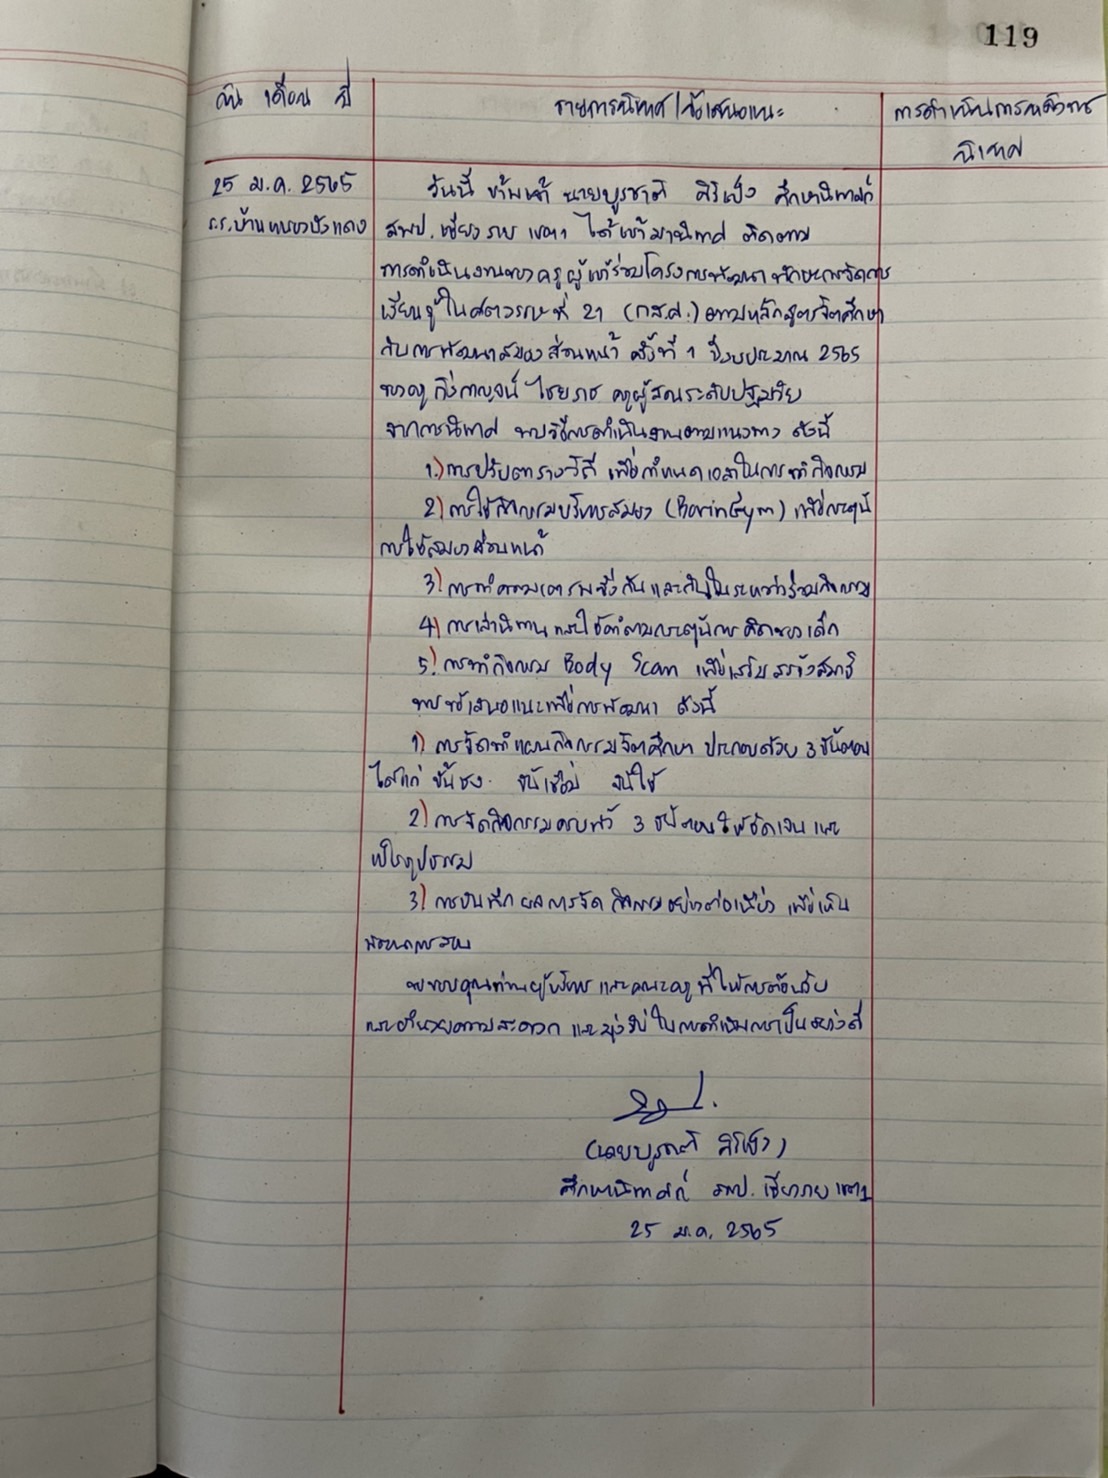 119
วัน เดือน ปี
รายการนิเทศ/ข้อเสนอแนะ
การดำเนินการหลังการ
นิเทศ
25 ม.ค. 2565
ร.ร.บ้านหนองบัวแดง
วันนี้ ข้าพเจ้า นายบูรชาติ ศิริเป็ง ศึกษานิเทศก์
สพป.เชียงราย เขต 1 ได้เข้ามานิเทศ ติดตาม
การดำเนินงานของครูผู้เข้าร่วมโครงการพัฒนาทักษะการจัดการ
เรียนรู้ในศตวรรษที่ 21 (กส.ศ.) ตามหลักสูตรจิตศึกษา
กับการพัฒนาสมองส่วนหน้า ครั้งที่ 1 ปีงบประมาณ 2565
ของครูกิ่งกาญจน์ ไชยราช ครูผู้สอนระดับปฐมวัย
จากการนิเทศ พบวิธีการดำเนินงานตามแนวทาง ดังนี้
1.) การปรับตารางวิถี เพื่อกำหนดเวลาในการทำกิจกรรม
2) การใช้กิจกรรมบริหารสมอง (BarinGym) เพื่อกระตุ้น
การใช้สมองส่วนหน้า
3) การทำความเคารพซึ่งกันและกันในระหว่างร่วมกิจกรรม
4) การเล่านิทาน และใช้คำถามกระตุ้นการคิดของเด็ก
5) การทำกิจกรรม Body Scan เพื่อเสริมสร้างสมาธิ
ข้อเสนอแนะเพื่อการพัฒนา ดังนี้
1) การจัดทำแผนกิจกรรมจิตศึกษา ประกอบด้วย 3 ขั้นตอน
ได้แก่ ขั้นชง ขั้นเชื่อม ขั้นใช้
2) การจัดกิจกรรมครบทั้ง 3 ขั้นตอนให้ชัดเจน และ
เป็นรูปธรรม
3) การบันทึกผลการจัดกิจกรรมอย่างต่อเนื่อง เพื่อเห็น
พัฒนาการ
ขอขอบคุณท่านผู้บริหาร และคณะครู ที่ให้การต้อนรับ
และอำนวยความสะดวก และมุ่งมั่นในการดำเนินการเป็นอย่างดี
(นายบูรชาติ ศิริเป็ง)
ศึกษานิเทศก์ สพป.เชียงราย เขต 1
25 ม.ค. 2565